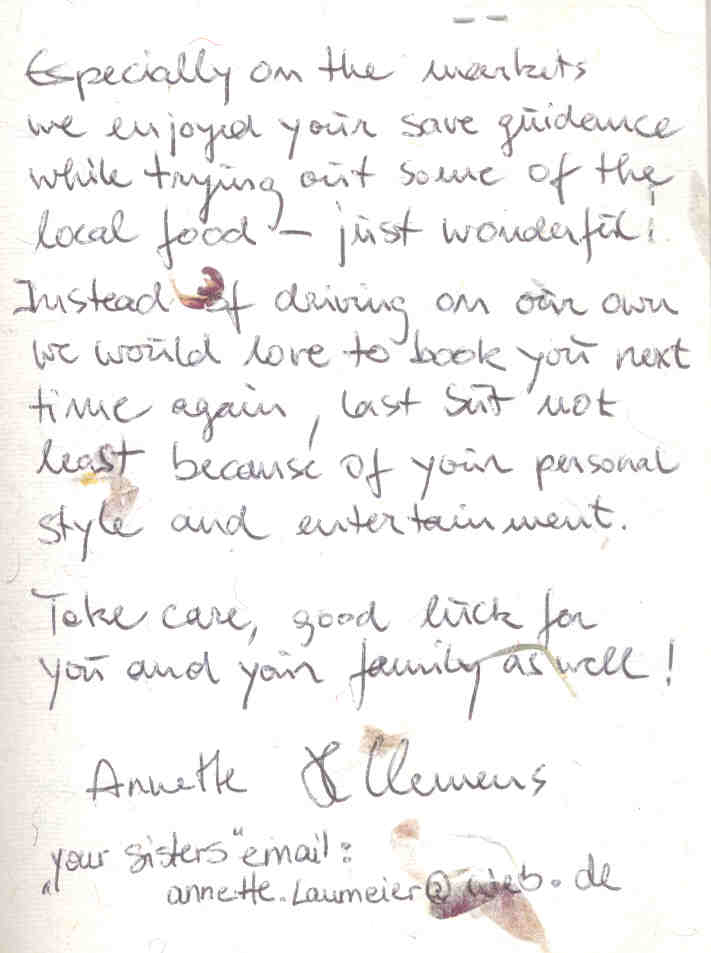 Especially on the markets
we enjoyed your save guidance
while trying out some of the
local food – just wonderful!
Instead of driving on our own
we would love to book you next
time again, last but not
least because of your personal
style and entertainment.
Take care, good luck for
you and your family as well!
Annette & Clemens
„your sisters“ email:
annette.laumeier@web.de